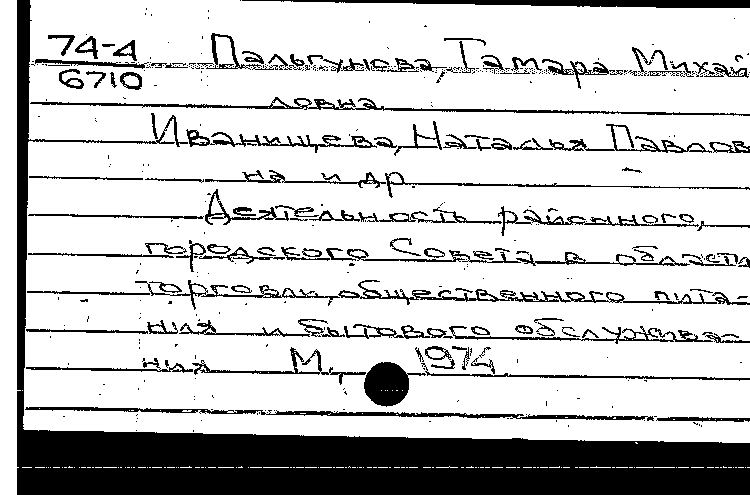 74-4 Пальгунова, Тамара Михай
6710
ловна.
Иванищева, Наталья Павлов-
на и др.
Деятельность районного,
городского Совета в области
торговли, общественного пита-
ния и бытового обслужива-
ния М., 1974